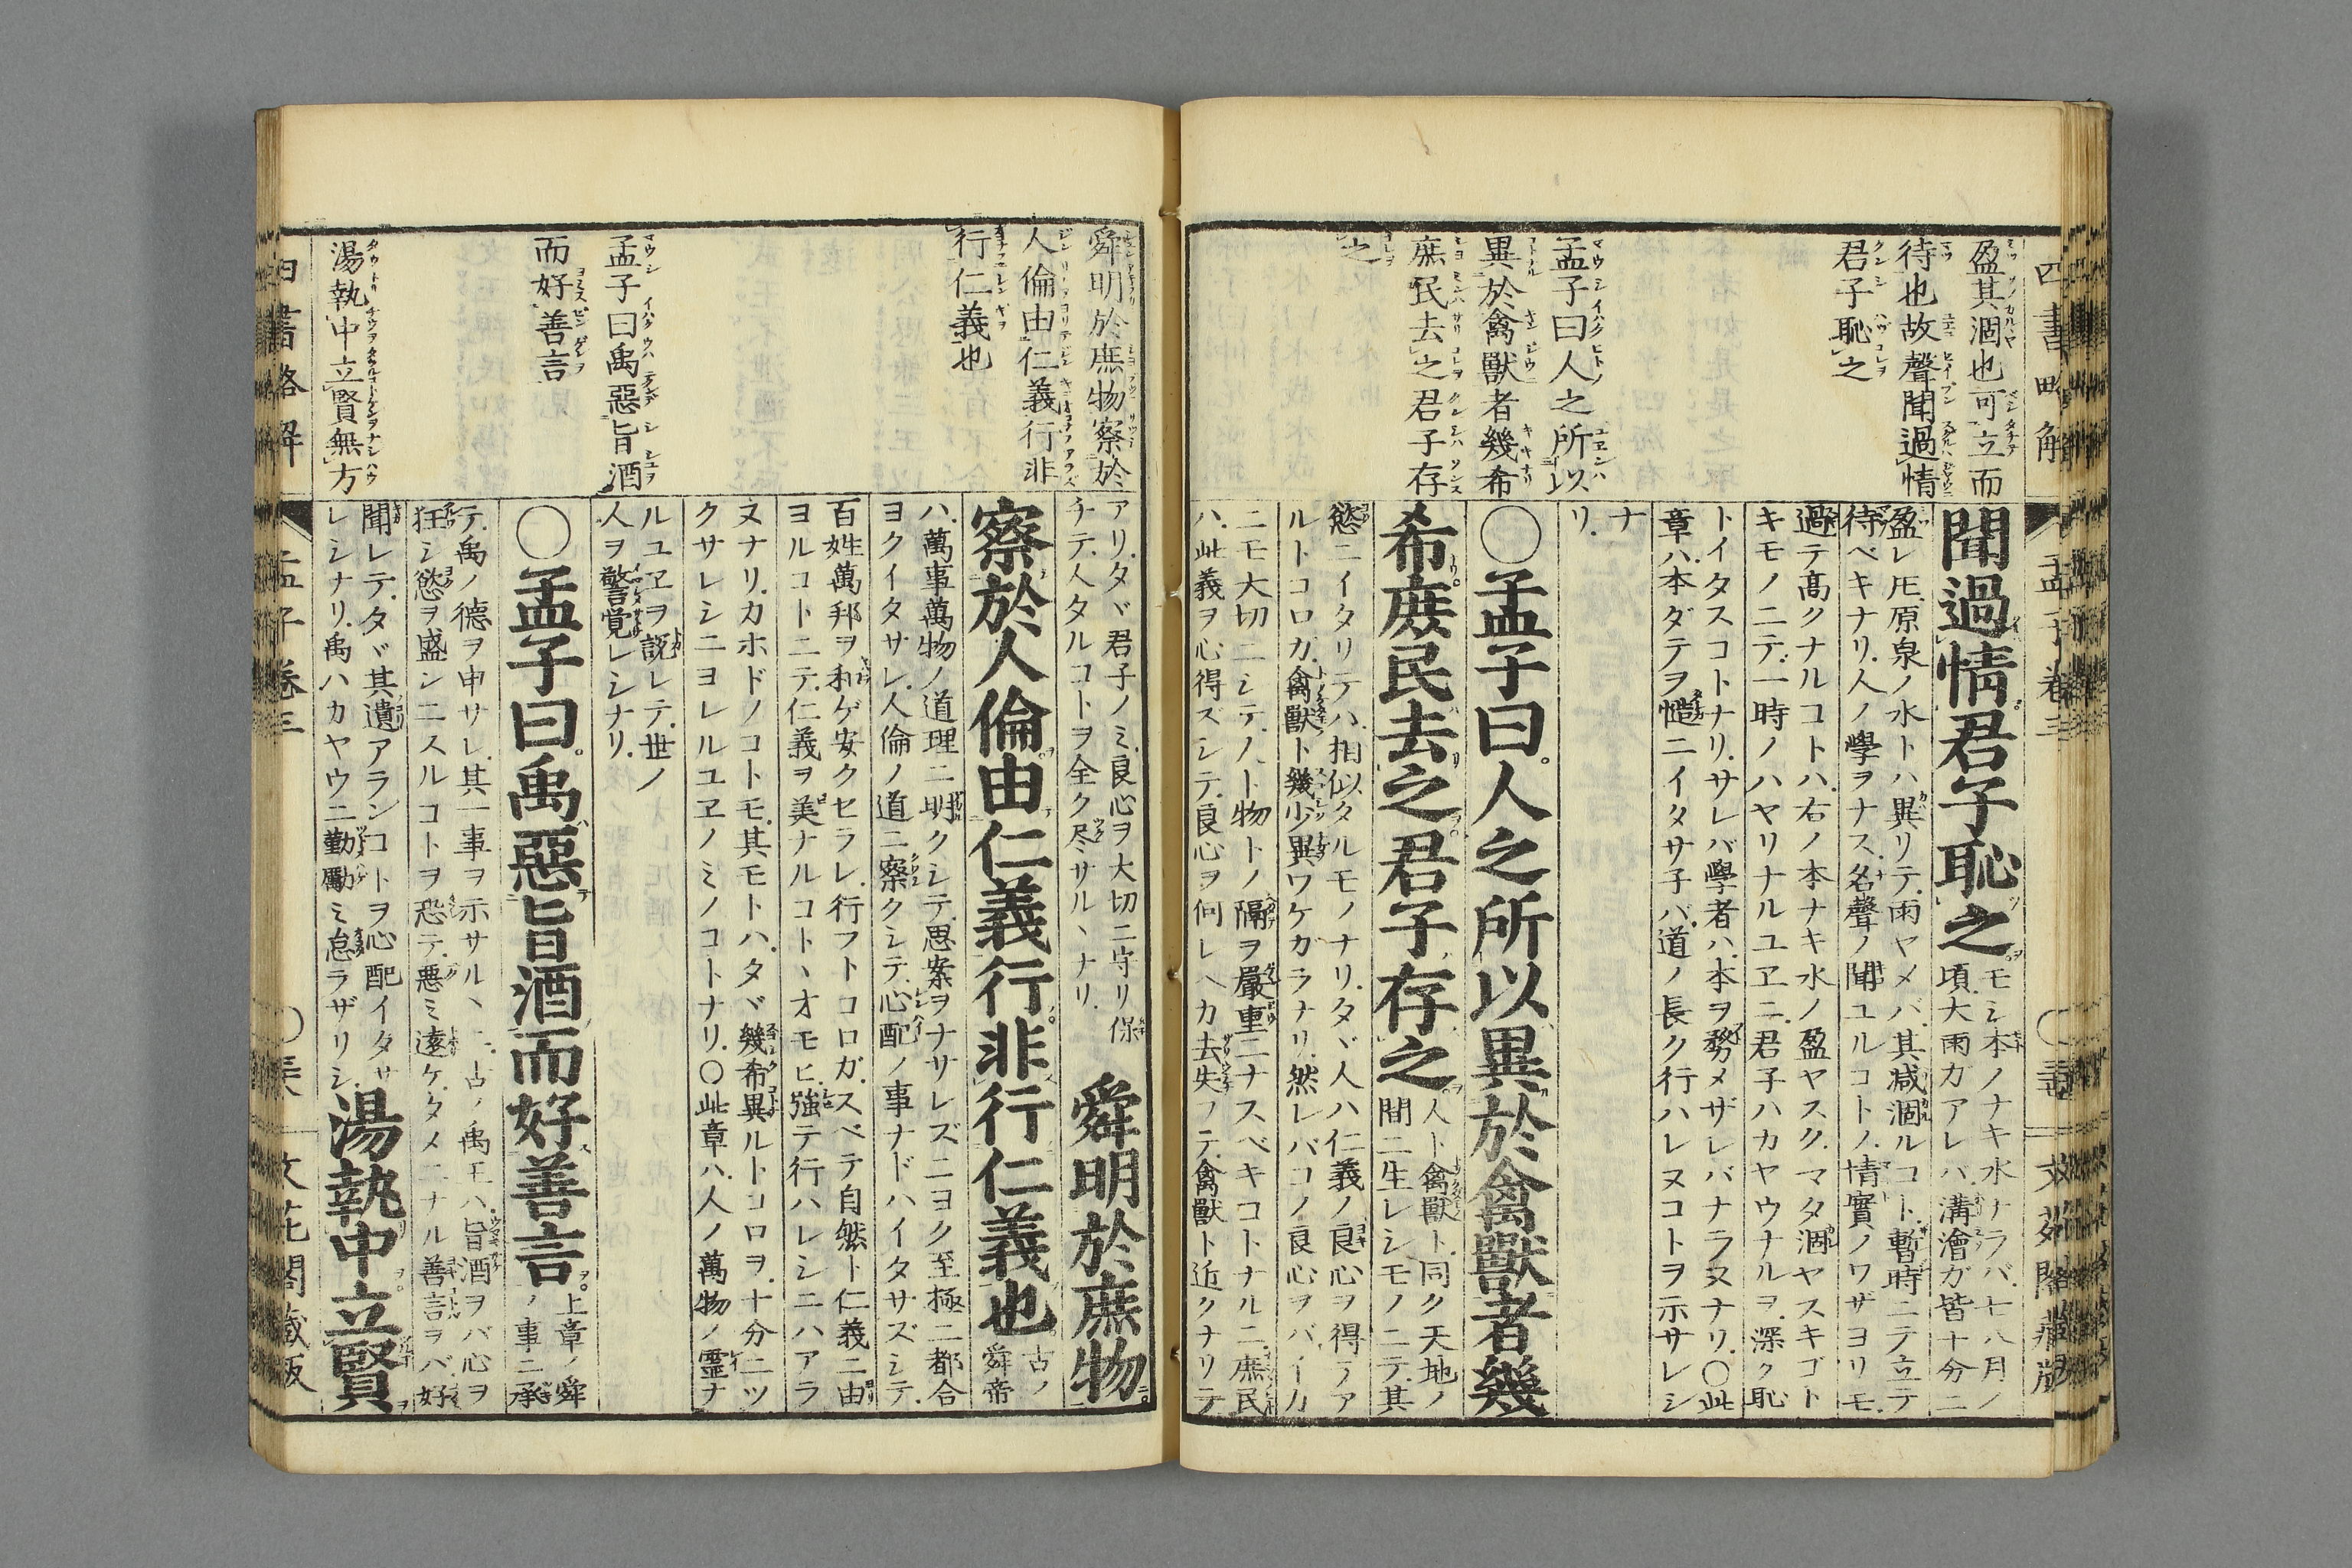 四書略解
孟子卷三
盈其涸也可立而
待也故聲聞過情
君子恥之
孟子曰人之所以
異於禽獸者幾希
庶民去之君子存
之
聞過情君子恥之
モシ本ノナキ水ナラバ七八月ノ
頃大雨ガアレバ溝澮ガ皆十分ニ
盈レ𪜈原泉ノ水トハ異リテ雨ヤメバ其減涸ルコト暫時ニテ立テ
待ベキナリ人ノ學ヲナス名聲ノ聞ユルコトノ情實ノワザヨリモ
過テ高クナルコトハ右ノ本ナキ水ノ盈ヤスクマタ涸ヤスキゴト
キモノニテ一時ノハヤリナルユヱニ君子ハカヤウナルヲ深ク恥
トイタスコトナリサレバ學者ハ本ヲ務メザレバナラヌナリ○此
章ハ本ダテヲ慥ニイタサ子バ道ノ長ク行ハレヌコトヲ示サレシ
ナ
リ
○孟子曰人之所以異於禽獸者幾
希庶民去之君子存之
人ト禽獸ト同ク天地ノ
間ニ生レシモノニテ其
慾ニイタリテハ相似タルモノナリタヾ人ハ仁義ノ良心ヲ得テア
ルトコロガ禽獸ト幾少異ワケガラナリ然レバコノ良心ヲバイカ
ニモ大切ニシテ人ト物トノ隔ヲ嚴重ニナスベキコトナルニ庶民
ハ此義ヲ心得ズシテ良心ヲ何レヘカ去失ノテ禽獸ト近クナリテ
舜明於庶物察於
人倫由仁義行非
行仁義也
孟子曰禹惡旨酒
而好善言
湯執中立賢無方
アリタヾ君子ノミ良心ヲ大切ニ守リ保
チテ人タルコトヲ全ク尽サルヽナリ
舜明於庶物
察於人倫由仁義行非行仁義也
古ノ
舜帝
ハ萬事萬物ノ道理ニ明クシテ思案ヲナサレズニヨク至極ニ都合
ヨクイタサレ人倫ノ道ニ察クシテ心配ノ事ナドハイタサズシテ
百姓萬邦ヲ和ゲ安クセラレ行フトコロガスベテ自然ト仁義ニ由
ヨルコトニテ仁義ヲ美ナルコトヽオモヒ強テ行ハレシニハアラ
ヌナリカホドノコトモ其モトハタヾ幾希異ルトコロヲ十分ニツ
クサレシニヨレルユヱノミノコトナリ○此章ハ人ノ萬物ノ霊ナ
ルユヱヲ説レテ世ノ
人ヲ警覚レシナリ
○孟子曰禹惡旨酒而好善言
上章ノ舜
ノ事ニ承
テ禹ノ德ヲ申サレ其一事ヲ示サルヽニ古ノ禹王ハ旨酒ヲバ心ヲ
狂シ慾ヲ盛ンニスルコトヲ恐テ惡ミ遠ケタメニナル善言ヲバ好
聞レテタヾ其遺アランコトヲ心配イタサ
レシナリ禹ハカヤウニ勤勵ミ怠ラザリシ
湯執中立賢
四書略解
孟子卷三
文花閣藏板